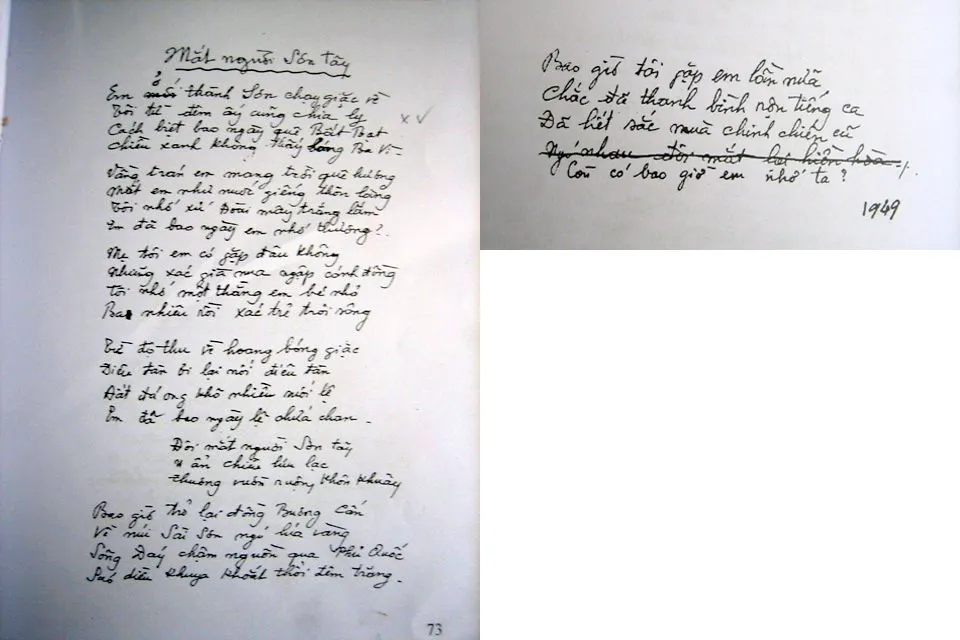 Mắt người Sơn Tây
Em ở thành Sơn chạy giặc về
Tôi từ đêm ấy cũng chia ly
Cách biệt bao ngày quê Bất Bạt
Chiều xanh không thấy bóng Ba Vì -
Vầng trán em mang trời quê hương
Mắt em như nước giếng thôn làng
Tôi nhớ xứ Đoài mây trắng lắm
Em đã bao ngày em nhớ thương? -
Mẹ tôi em có gặp đâu không
Những xác già nua ngập cánh đồng
Tôi nhớ một thằng em bé nhỏ
Bao nhiêu rồi xác trẻ trôi sông
Từ độ thu về hoang bóng giặc
Điêu tàn ôi lại nối điêu tàn
Đất đá ong khô nhiều suối lệ
Em đã bao ngày lệ chứa chan -
Đôi mắt người Sơn Tây
U ẩn chiều lưu lạc
Thương vườn ruộng khôn khuây
Bao giờ trở lại đồng Bương Cấn
Về núi Sài Sơn ngó lúa vàng
Sông Đáy chậm nguồn qua Phủ Quốc
Sáo diều khuya khoắt thổi đêm trăng -
73
Bao giờ tôi gặp em lần nữa
Chắc đã thanh bình rộn tiếng ca
Đã hết sắc mùa chinh chiến cũ
Ngó nhau đôi mắt lại hiền hòa
Còn có bao giờ em nhớ ta?
1949